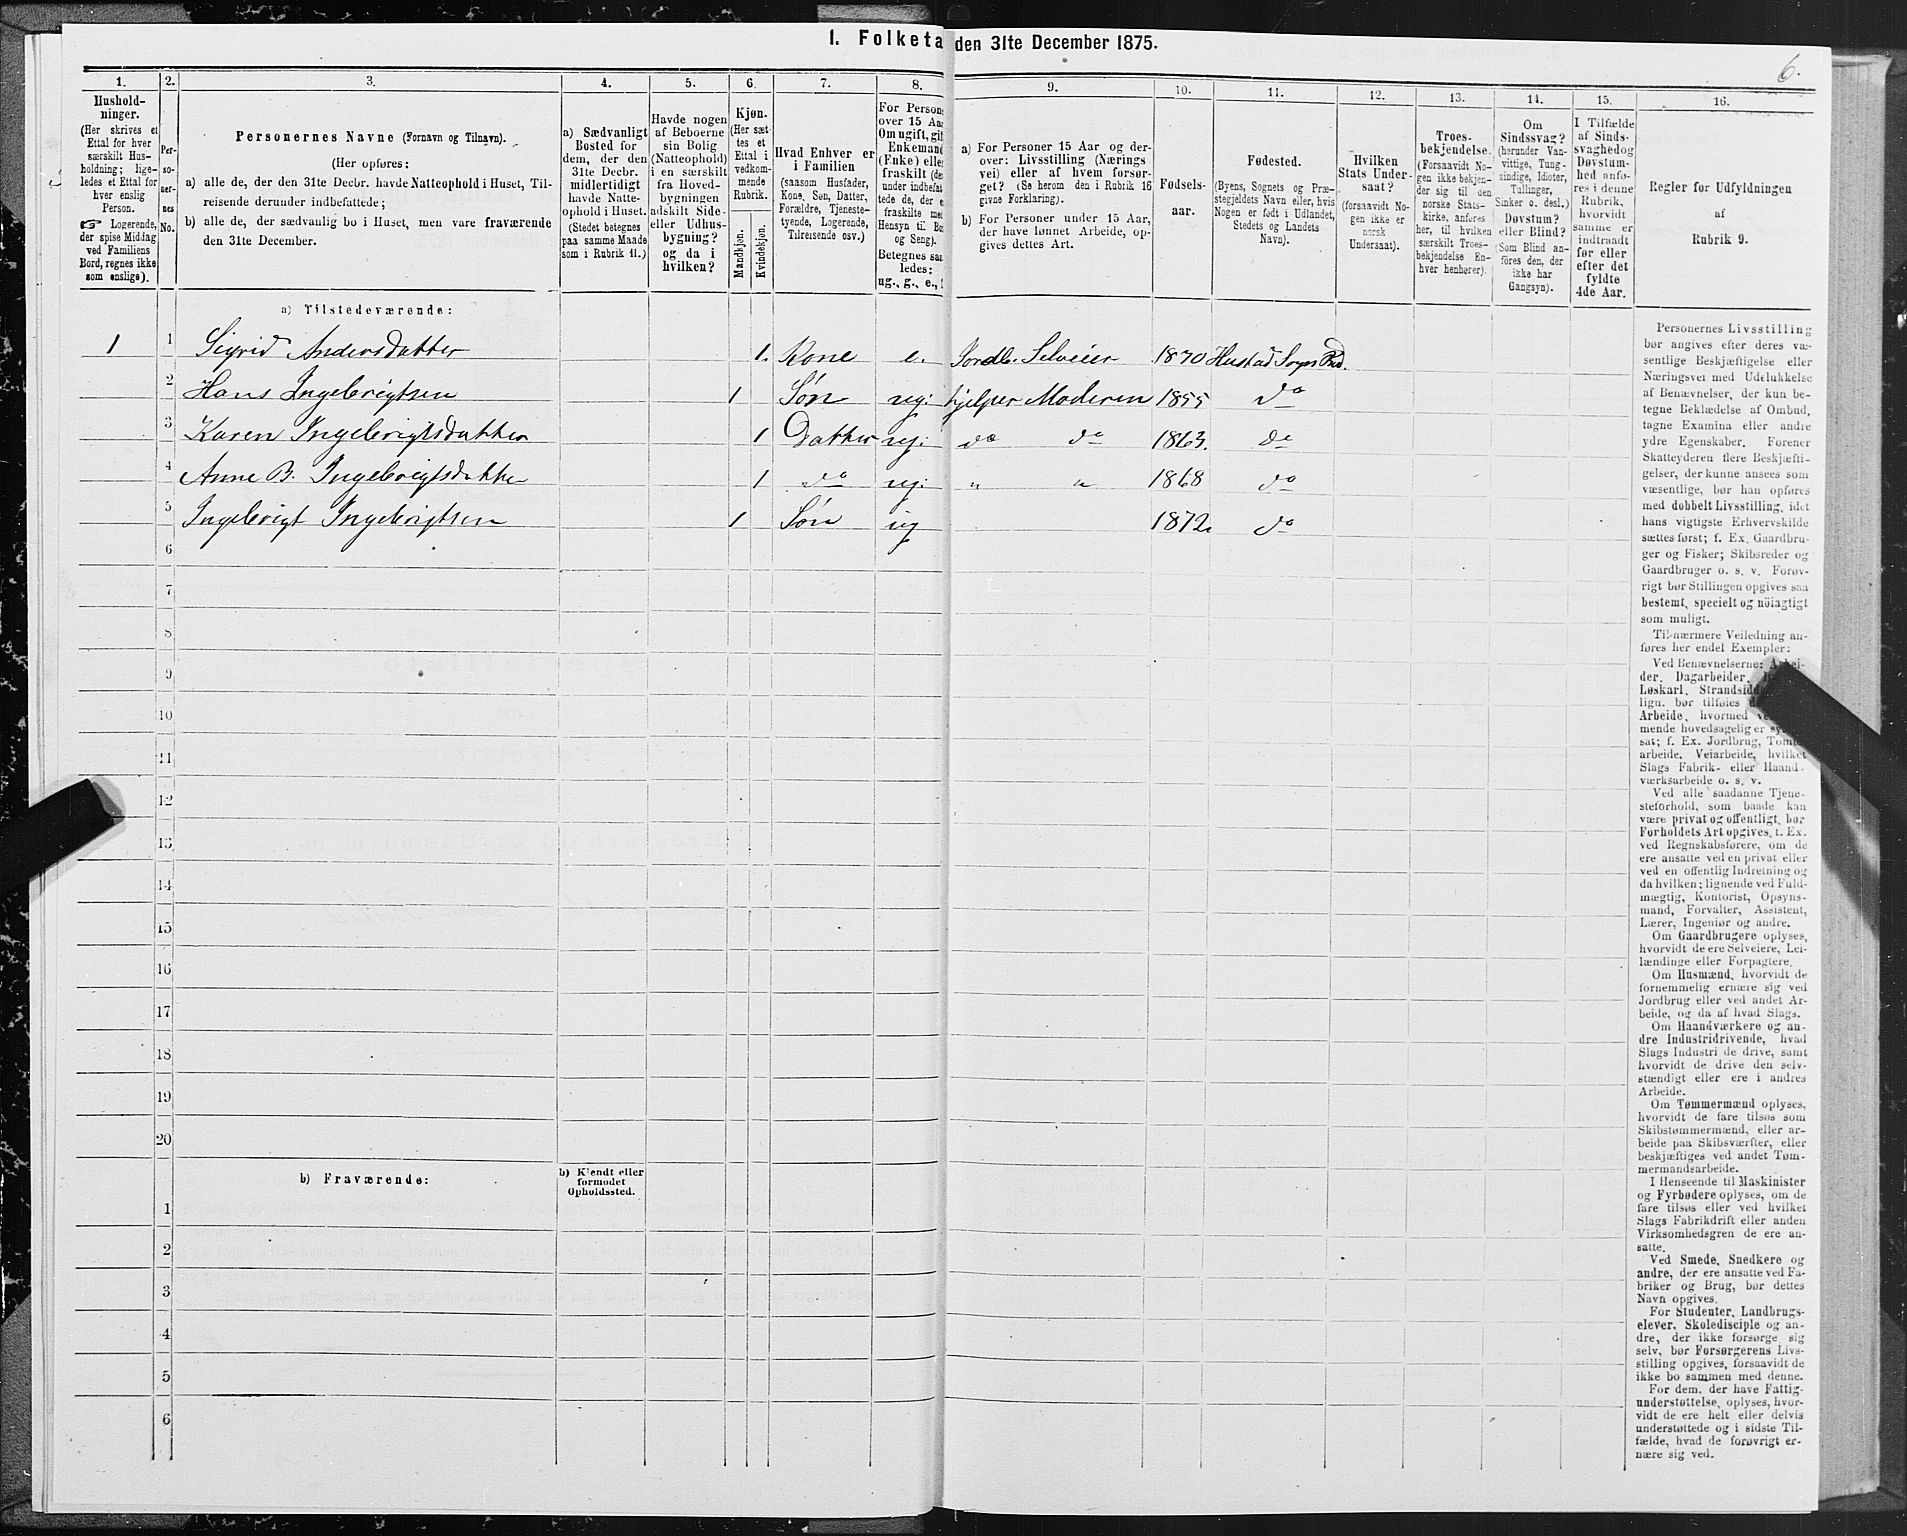 1. Folketa den 31te December 1875.
6.
1. 2. 3. 4. 5. 6. 7. 8. 9. 10. 11. 12. 13. 14. 15. 16.
Hushold-
ninger.
(Her skrives et
Ettal for hver
særskilt Hus-
holdning; lige-
ledes et Ettal for
hver enslig
Person.
☞ Logerende,
der spise Middag
ved Familiens
Bord, regnes ikke
som enslige).
Per-
so-
ner-
nes
No.
Personernes Navne (Fornavn og Tilnavn).
(Her opføres:
a) alle de, der den 31te Decbr. havde Natteophold i Huset, Til-
reisende derunder indbefattede;
b) alle de, der sædvanlig bo i Huset, men vare fraværende
den 31te December.
a) Sædvanligt
Bosted for
dem, der den
31te Decbr.
midlertidigt
havde Natte-
ophold i Huset.
(Stedet betegnes
paa samme Maade
som i Rubrik 11.)
Havde nogen
af Beboerne
sin Bolig
(Natteophold)
i en særskilt
fra Hoved-
bygningen
adskilt Side-
eller Udhus-
bygning?
og da i
hvilken?
Kjøn.
(Her sæt-
tes et
Ettal i
vedkom-
mende
Rubrik.
Mandkjøn.
Kvindekjøn.
Hvad Enhver er
i Familien
(saasom Husfader,
Kone, Søn, Datter,
Forældre, Tjeneste-
tyende, Logerende,
Tilreisende osv.)
For Person
over 15 Aar
Om ugift, gif
Enkemand
(Enke) elle
fraskilt (de
under indbefat
tede de, der e
fraskilte med
Hensyn til Bo
og Seng).
Betegnes saa
ledes:
ug., g., e.,
a) For Personer 15 Aar og der-
over: Livsstilling (Nærings
vei) eller af hvem forsør-
get? (Se herom den i Rubrik 16
givne Forklaring).
b) For Personer under 15 Aar,
der have lønnet Arbeide, op-
gives dettes Art.
Fødsels-
aar.
Fødested.
(Byens, Sognets og Præ-
stegjeldets Navn eller, hvis
Nogen er født i Udlandet,
Stedets og Landets
Navn).
Hvilken
Stats Under-
saat?
(forsaavidt No-
gen ikke er
norsk
Undersaat).
Troes-
bekjendelse.
(Forsaavidt No-
gen ikke bekjen-
der sig til den
norske Stats-
kirke, anføres
her, til hvilken
særskilt Troes-
bekjendelse En-
hver henhører).
Om
Sindssvag?
(herunder Van-
vittige, Tung-
sindige, Idioter,
Tullinger,
Sinker o. desl.)
Døvstum?
eller Blind?
(Som Blind an-
føres den, der
ikke har
Gangsyn).
I Tilfælde
af Sinds-
svaghed og
Døvstum-
hed anfø-
res i denne
Rubrik,
hvorvidt
samme er
indtraadt
før eller
efter det
fyldte
4de Aar.
Regler for Udfyldningen
af
Rubrik 9.
a) Tilstedeværende:
1 1 Sigrid Andersdatter 1. Kone e. Jordb. Selveier 1870 Hustad Sogn
2 Hans Ingebrigtsen 1 Søn ug: hjelper Moderen 1855 do
3 Karen Ingebrigtsdatter 1 Datter ug: do do 1863. do
4 Anne B. Ingebrigtsdatter 1 do ug: " " 1868 do
5 Ingebrigt Ingebrigtsen 1 Søn ug 1872. do
6
7
8
9
10
11
12
13
14
15
16
17
18
19
20
b) Fraværende: b) Kjendt eller
formodet
Opholdssted.
1
2
3
4
5
6
Personernes Livsstilling
bør angives efter deres væ-
sentlige Beskjæftigelse eller
Næringsvei med Udelukkelse
af Benævnelser, der kun be-
tegne Beklædelse af Ombud,
tagne Examina eller andre
ydre Egenskaber. Forener
Skatteyderen flere Beskjæfti-
gelser, der kunne ansees som
væsentlige, bør han opføres
med dobbelt Livsstilling, idet
hans vigtigste Erhvervskilde
sættes først; f. Ex. Gaardbru-
ger og Fisker; Skibsreder og
Gaardbruger o. s. v. Forøv-
rigt bør Stillingen opgives saa
bestemt, specielt og nøiagtigt
som muligt.
Til nærmere Veiledning an-
føres her endel Exempler:
Ved Benævnelserne: Arbei-
der, Dagarbeider,
Løskarl, Strandsidd
lign. bør tilføies
Arbeide, hvormed
mende hovedsagelig er
sat; f. Ex. Jordbrug, Tomte
arbeide, Veiarbeide, hvilket
Slags Fabrik- eller Haand-
værksarbeide o. s. v.
Ved alle saadanne Tjene-
steforhold, som baade kan
være privat og offentligt, bør
Forholdets Art opgives, f. Ex.
ved Regnskabsførere, om de
ere ansatte ved en privat eller
ved en offentlig Indretning og
da hvilken; lignende ved Fuld-
mægtig, Kontorist, Opsyns-
mand, Forvalter, Assistent,
Lærer, Ingeniør og andre.
Om Gaardbrugere oplyses,
hvorvidt de ere Selveiere, Lei-
lændinge eller Forpagtere.
Om Husmænd, hvorvidt de
fornemmelig ernære sig ved
Jordbrug eller ved andet Ar-
beide, og da af hvad Slags.
Om Haandværkere og an-
dre Industridrivende, hvad
Slags Industri de drive, samt
hvorvidt de drive den selv-
stændigt eller ere i andres
Arbeide.
Om Tømmermænd oplyses,
hvorvidt de fare tilsøs som
Skibstømmermænd, eller ar-
beide paa Skibsværfter, eller
beskjæftiges ved andet Tøm-
mermandsarbeide.
I Henseende til Maskinister
og Fyrbødere oplyses, om de
fare tilsøs eller ved hvilket
Slags Fabrikdrift eller anden
Virksomhedsgren de ere an-
satte.
Ved Smede, Snedkere og
andre, der ere ansatte ved Fa-
briker og Brug, bør dettes
Navn opgives.
For Studenter, Landbrugs-
elever, Skoledisciple og an-
dre, der ikke forsørge sig
selv, bør Forsørgerens Livs-
stilling opgives, forsaavidt de
ikke bo sammen med denne.
For dem, der have Fattig-
understøttelse, oplyses, hvor-
vidt de ere helt eller delvis
understøttede og i sidste Til-
fælde, hvad de forøvrigt er-
nære sig ved.